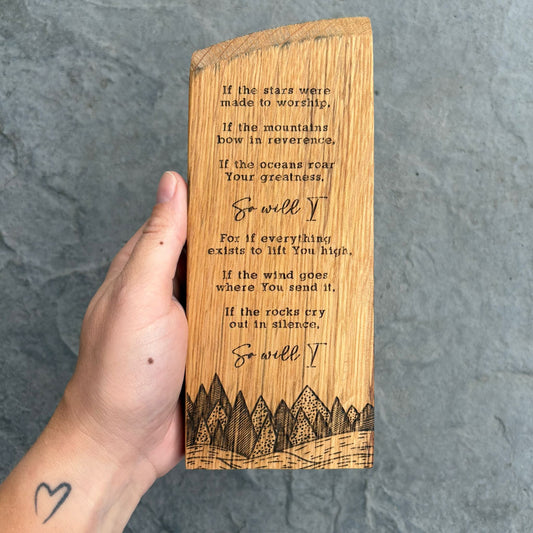 If the stars were
made to worship,
If the mountains
bow in reverence,
If the oceans roar
Your greatness,
So will I
For if everything
exists to lift You high,
If the wind goes
where You send it,
If the rocks cry
out in silence,
So will I